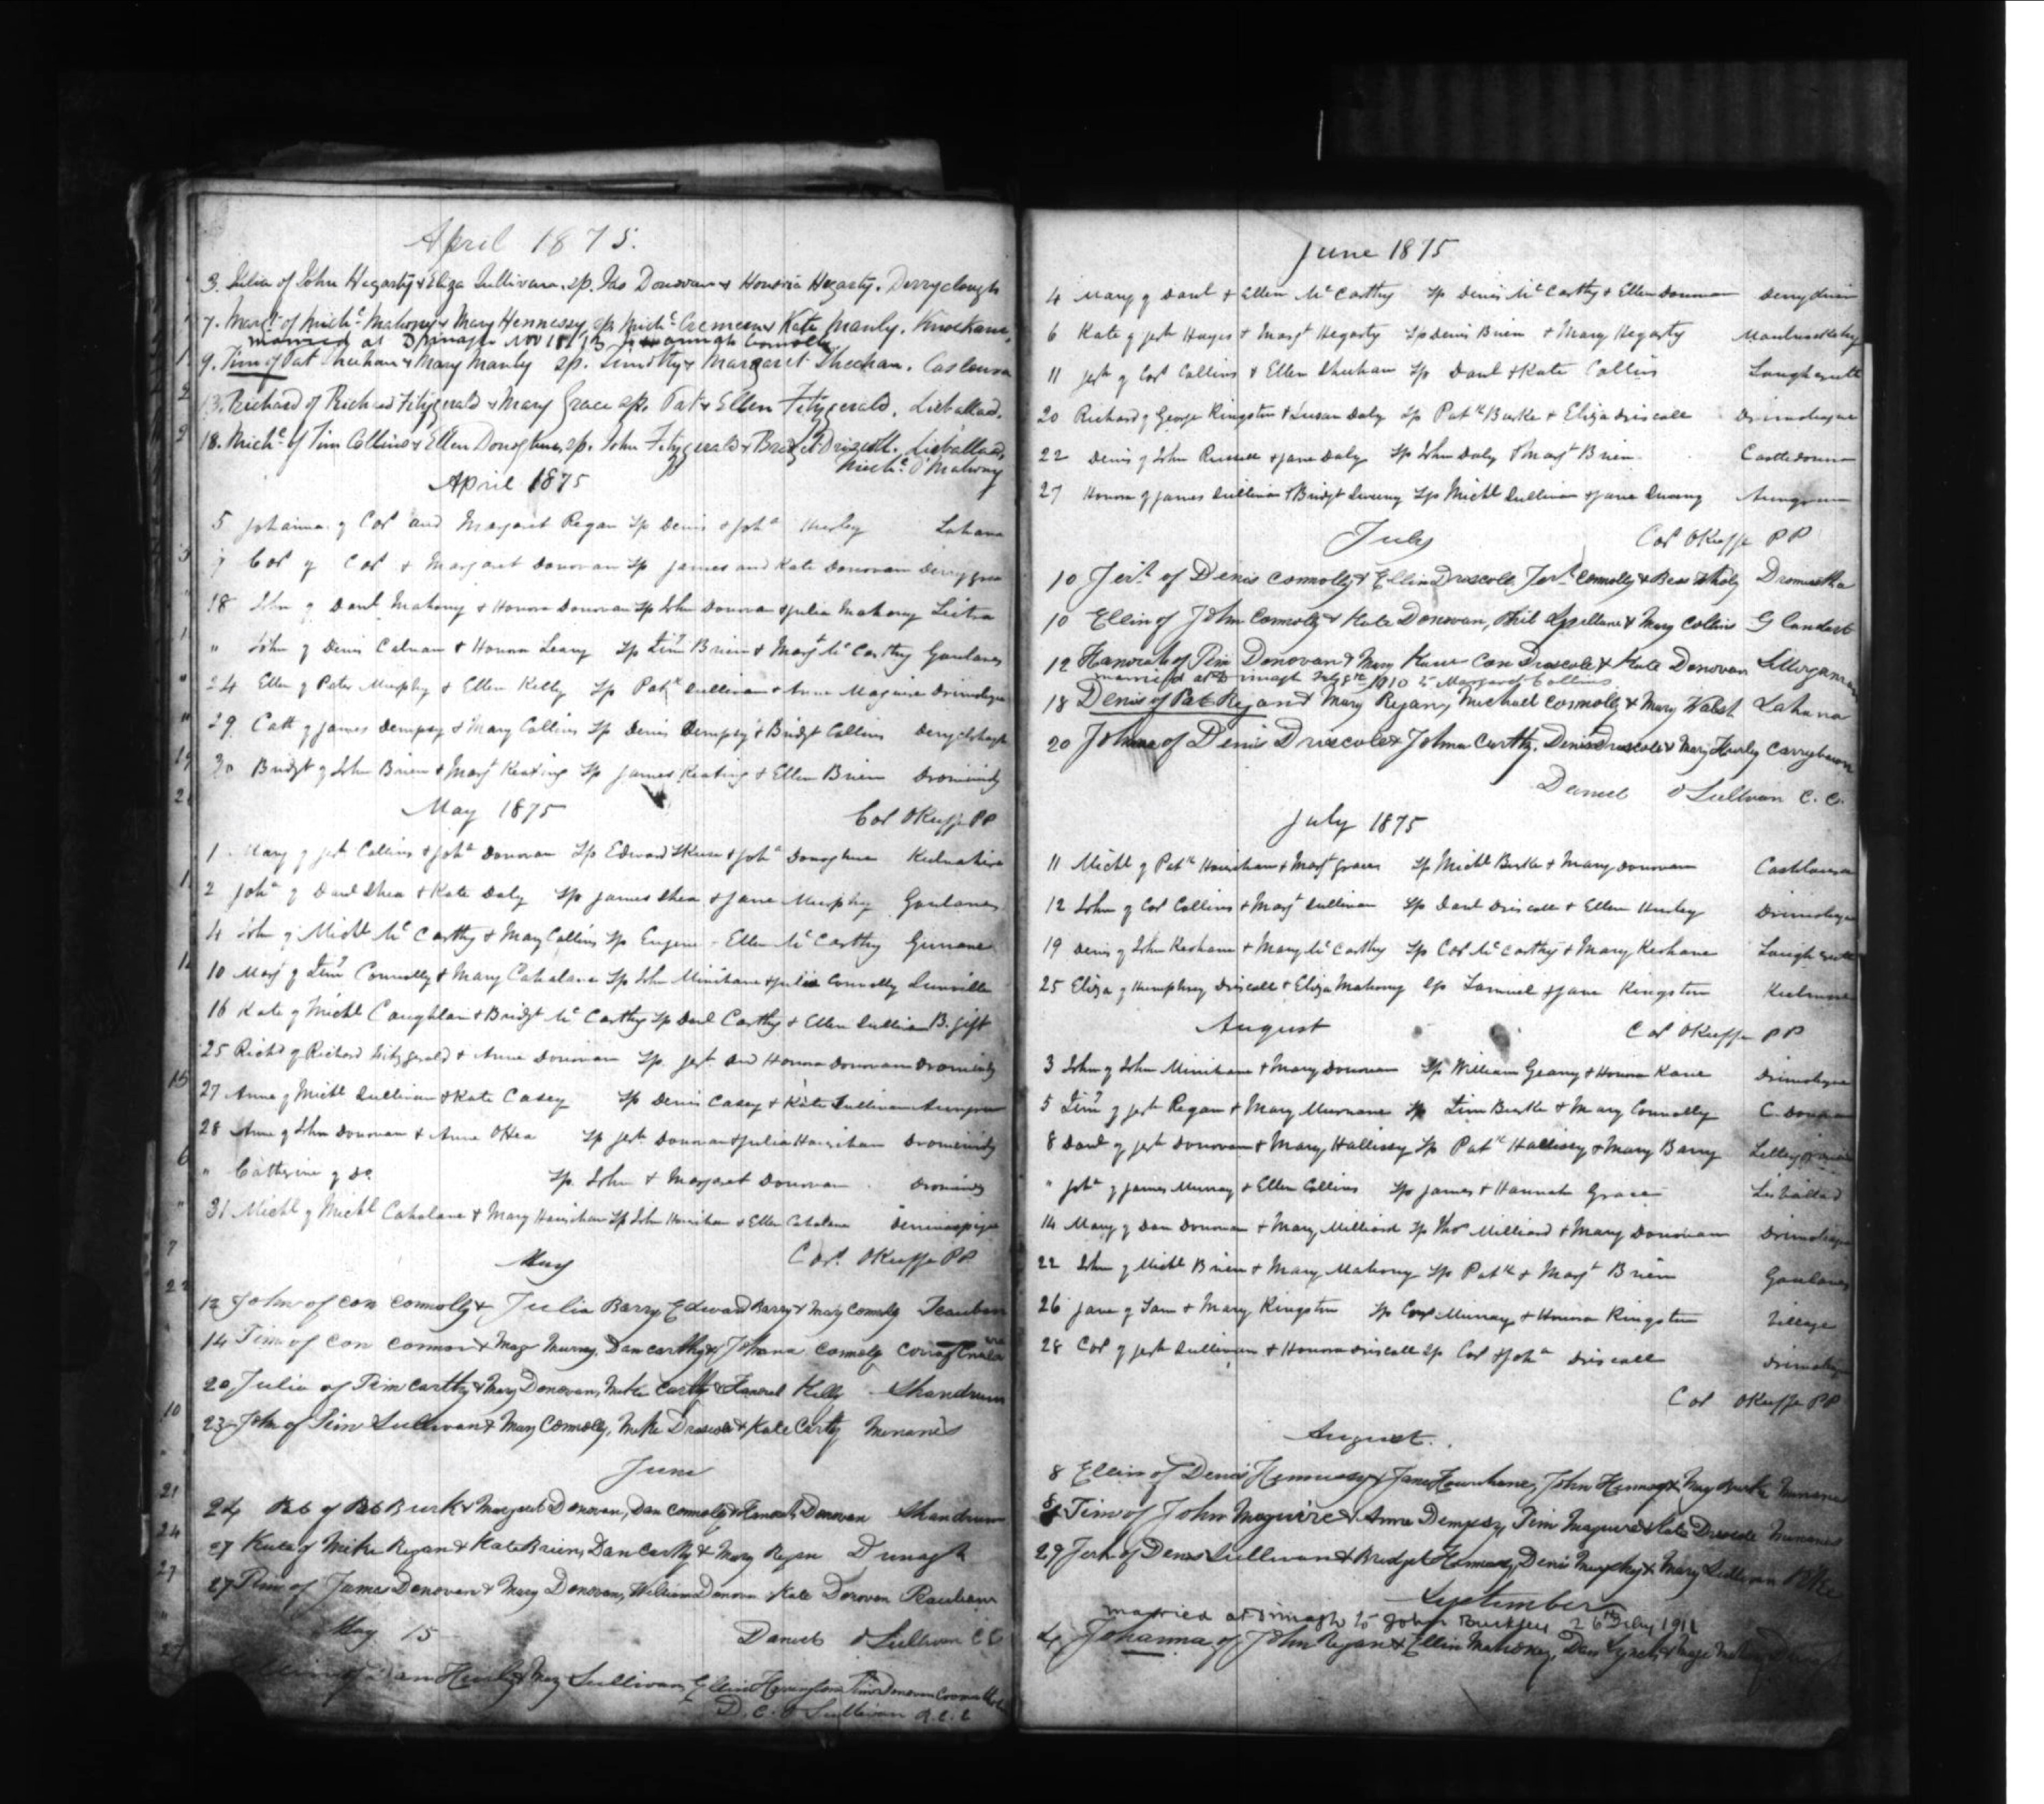 April 1875.
3. Julia of John Hegarty & Eliza Sullivan. sp. Jas Donovan & Honoria Hegarty. Derryclough
7. Margt of Michl Mahony & Mary Hennessy sp. Michl Cremen & Kate Manly.
married at Drinagh Nov 18/13 Hannah Connolly
9. Tim of Pat Sheehan & Mary Manly sp. Timothy & Margaret Sheehan.
13. Richard of Richard Fitzgerald & Mary Grace sp. Pat & Ellen Fitzgerald. Lisballad.
18. Michl of Tim Collins & Ellen Donoghue, sp. John Fitzgerald & Bridget Driscoll. Lisballad,
Michl O'Mahony
April 1875
5 Johanna of Cor and Margaret Regan Sp Denis & Joha Hurley Lahana
7 Cor of Cor & Margaret Donovan Sp James and Kate Donovan
18 John of Danl Mahony & Honora Donovan Sp John Donovan & Julia Mahony Leitra
" John of Denis Calnan & Honora Leary Sp Timy Brien & Margt McCarthy Goulanes
24 Ellen of Peter Murphy & Ellen Kelly Sp Patk Sullivan & Anne Maguire Drimoleague
29 Cath of James Dempsey & Mary Collins Sp Denis Dempsey & Bridgt Collins Derryclough
30 Bridgt of John Brien & Margt Keating Sp James Keating & Ellen Brien Dromindy
May 1875 Cor OKeeffe PP
1 Mary of Jerh Collins & Joha Donovan Sp Edward Skuse & Joha Donoghue
2 Joha of Danl Shea & Kate Daly Sp James Shea & Jane Murphy Goulanes
4 John of Michl McCarthy & Mary Collins Sp Eugene - Ellen McCarthy Gurrane
10 Margt of Timy Connolly & Mary Cahalane Sp John Minihane & Julia Connolly
16 Kate of Michl Coughlan & Bridgt McCarthy Sp Danl Carthy & Ellen Sullivan B. gift
25 Richd of Richard Fitzgerald & Anne Donovan Sp Jerh and Honora Donovan Dromindy
27 Anne of Michl Sullivan & Kate Casey Sp Denis Casey & Kate Sullivan
28 Anne of John Donovan & Anne OHea Sp Jerh Donovan & Julia Hourihan Dromindy
" Catherine of Do Sp John & Margaret Donovan Dromindy
31 Michl of Michl Cahalane & Mary Hourihan Sp John Hourihan & Ellen Cahalane
May Cor OKeeffe PP
12 John of Con Connolly & Julia Barry, Edward Barry & Mary Connolly
14 Tim of Con Connor & Mag Murray, Dan Carthy & Johana Connoly
20 Julia of Tim Carthy & Mary Donovan, Mike Carthy & Hanorah Kelly Shandrum
23 John of Tim Sullivan & Mary Connolly, Mike Driscole & Kate Carthy Minanes
June
24 Pat of Pat Burk & Margaret Donovan, Dan Connoly & Hanorah Donovan Shandrum
27 Kate of Mike Regan & Kate Brien, Dan Carthy & Mary Regan Drinagh
27 Tim of James Donovan & Mary Donovan, William Donovan Kate Donovan
May 15 Daniel O'Sullivan CC
of Dan Hurly & Mary Sullivan, Ellin Tim Donovan
D. C. O'Sullivan
June 1875
4 Mary of Danl & Ellen McCarthy Sp Denis McCarthy & Ellen Donovan
6 Kate of Jerh Hayes & Margt Hegarty Sp Denis Brien & Mary Hegarty
11 Jerh of Cors Collins & Ellen Sheehan Sp Danl & Kate Collins
20 Richard of George Kingston & Susan Daly Sp Patk Burke & Eliza Driscoll Drimoleague
22 Denis of John Russell & Jane Daly Sp John Daly & Margt Brien Castledonovan
27 Honora of James Sullivan & Bridgt Sweeny Sp Michl Sullivan & Jane Sweeny
July Cor OKeeffe PP
10 Jerh of Denis Connolly & Ellin Driscole Jerh Connolly & Bess Wholy
10 Ellin of John Connolly & Kate Donovan, Phil Spillane & Mary Collins Glandart
12 Hanorah of Tim Donovan & Mary Con Driscole & Kate Donovan
married at Drinagh Feb 8th 1910 to Margaret Collins
18 Denis of Pat Regan & Mary Regan, Michael Connolly & Mary Walsh Lahana
20 Johana of Denis Driscole & Johna Carthy. Denis Driscole & Mary Hurley
Daniel O'Sullivan C. C.
July 1875
11 Michl of Patk Hourihan & Margt Graces Sp Michl Burke & Mary Donovan
12 John of Cor Collins & Margt Sullivan Sp Danl Driscoll & Ellen Hurley Drimoleague
19 Denis of John Keohane & Mary McCarthy Sp Cor McCarthy & Mary Keohane
25 Eliza of Humphrey Driscoll & Eliza Mahony Sp Samuel & Jane Kingston
August Cor OKeeffe PP
3 John of John Minihane & Mary Donovan Sp William Geany & Honora Kane Drimoleague
5 Timy of Jerh Regan & Mary Murnane Sp Tim Burke & Mary Connolly C. Donovan
8 Danl of Jerh Donovan & Mary Hallissy Sp Patk Hallissy & Mary Barry
" Joha of James Murray & Ellen Collins Sp James & Hannah Grace Lisballad
14 Mary of Dan Donovan & Mary Milliard Sp Thos Milliard & Mary Donovan Drimoleague
22 John of Michl Brien & Mary Mahony Sp Patk & Margt Brien Goulanes
26 Jane of Sam & Mary Kingston Sp Cors Murray & Honora Kingston Village
28 Cor of Jerh Sullivan & Honora Driscoll Sp Cor & Joha Driscoll Drimoleague
Cor OKeeffe PP
August.
8 Ellin of Denis Hennessy & Jane Hourihane, John Hennessy & Mary Burke Minanes
8 Tim of John Maguire & Anne Dempsy, Tim Maguire & Kate Driscole Minanes
29 Jerh of Denis Sullivan & Bridget Hennessy, Denis Murphy & Mary Sullivan
September
married at Drinagh to John Buckley 26th Feby 1911
4 Johanna of John Regan & Ellin Mahoney, Dan Lynch &